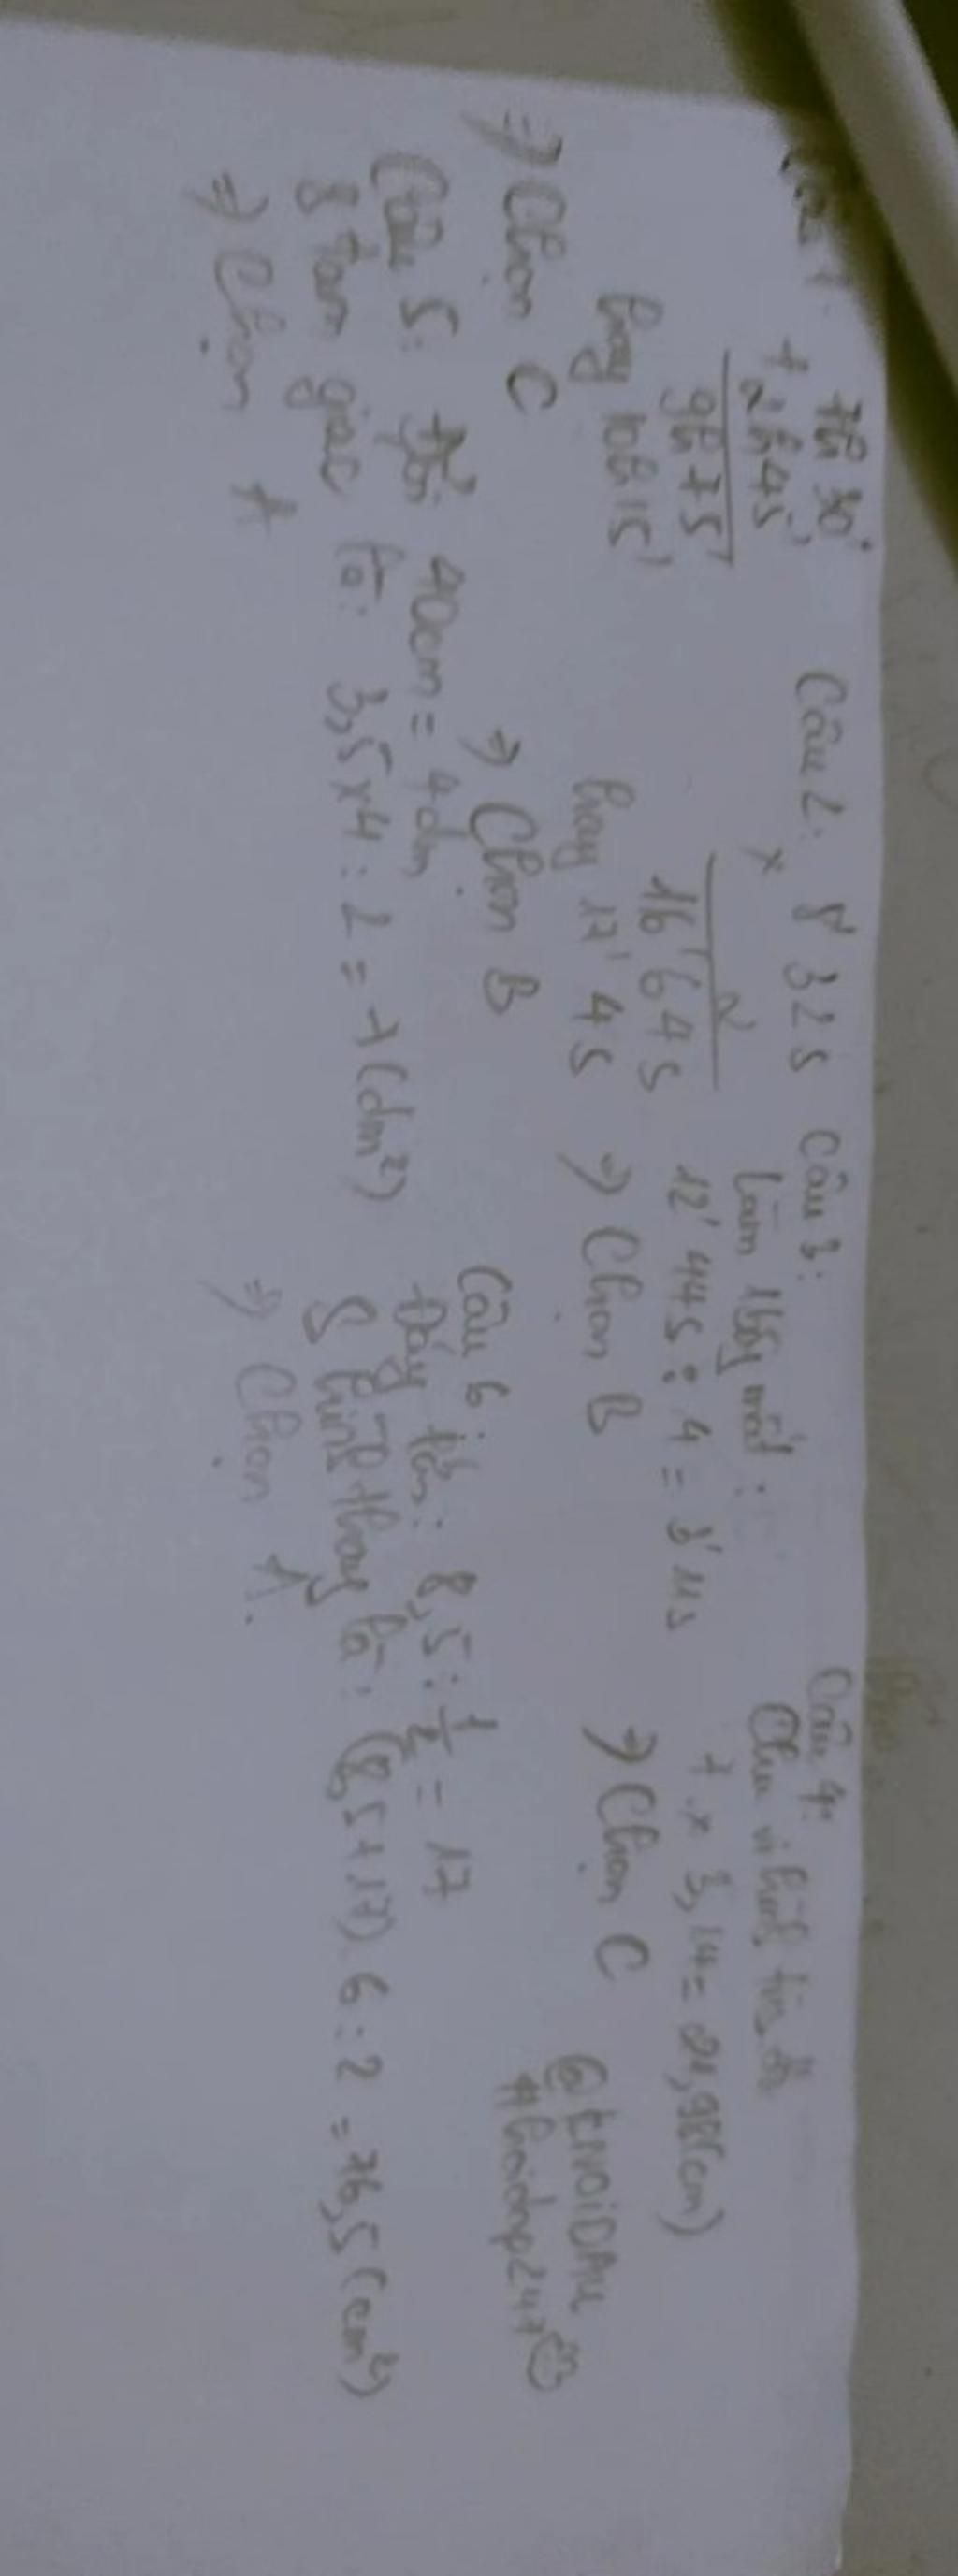 Câu 1:
7h 30'
+ 2h 45'
9h 75'
hay 10h 15'
=> Chọn C
Câu 2: 8' 32 s
x 2
16' 64 s
hay 17' 4 s
=> Chọn B
Câu 3:
Làm 1 mất :
12' 44 s : 4 = 3' 11 s
=> Chọn B
Câu 4:
Chu vi hình tròn là
7 x 3,14 = 21,98 (cm)
=> Chọn C
@tnoiDAu
#hoidap247
Câu 5: Đổi 40cm = 4dm
S tam giác là: 3,5 x 4 : 2 = 7 (dm²)
=> Chọn A
Câu 6:
Đáy lớn: 8,5 : 1/2 = 17
S hình thang là: (8,5 + 17) . 6 : 2 = 76,5 (cm²)
=> Chọn A.